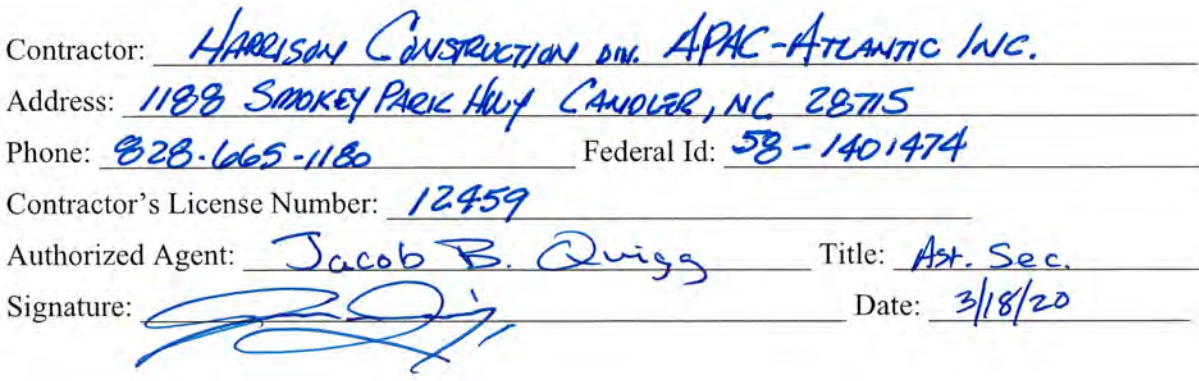 Contractor: HARRISON CONSTRUCTION DIV. APAC-ATLANTIC INC.
Address: 1188 SMOKEY PARK HWY CANDLER, NC 28715
Phone: 828-665-1180 Federal Id: 58-1401474
Contractor's License Number: 12459
Authorized Agent: Jacob B. Quigg Title: Ast. Sec.
Signature: Date: 3/18/20